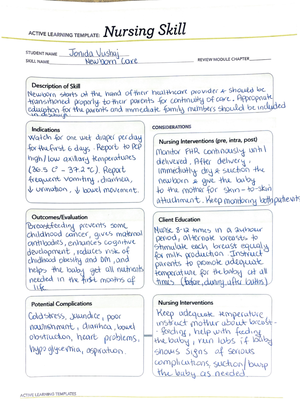 ACTIVE LEARNING TEMPLATE: Nursing Skill
STUDENT NAME Jonida Vushaj
SKILL NAME Newborn Care REVIEW MODULE CHAPTER
Description of Skill
Newborn starts at the hand of their healthcare provider & should be
transitioned properly to their parents for continuity of care. Appropriate
education for the parents and immediate family members should be included
Indications
Watch for one wet diaper per day
for the first 6 days. Report to PCP
high/low axillary temperatures
(36.5 C° - 37.2 °C). Report
frequent vomiting, diarrhea,
↓ urination, ↓ bowel movement.
CONSIDERATIONS
Nursing Interventions (pre, intra, post)
Monitor FHR continuously until
delivered. After delivery,
immediately dry & suction the
newborn & give the baby
to the mother for skin-to-skin
attachment. Keep monitoring both patients
Outcomes/Evaluation
Breastfeeding prevents some
childhood cancer, gives maternal
antibodies, enhances cognitive
development, reduces risk of
childhood obesity and DM, and
helps the baby get all nutrients
needed in the first months of
life.
Client Education
Nurse 8-12 times in a 24hour
period, alternate breasts to
stimulate each breast equally
for milk production. Instruct
parents to promote adequate
temperature for the baby at all
times (before, during, after baths)
Potential Complications
Cold stress, jaundice, poor
nourishment, diarrhea, bowel
obstruction, heart problems,
hypoglycemia, aspiration.
Nursing Interventions
Keep adequate temperature
instruct mother about breast-
feeding, help with feeding
the baby, run labs if baby
shows signs of serious
complications, suction/burp
the baby as needed.
ACTIVE LEARNING TEMPLATES